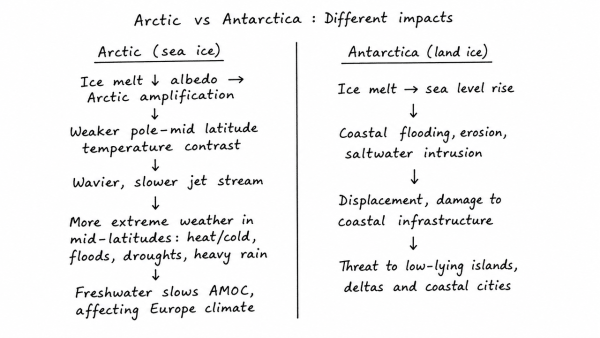 Arctic vs Antarctica : Different impacts
Arctic (sea ice)
Ice melt ↓ albedo →
Arctic amplification
↓
Weaker pole-mid latitude
temperature contrast
↓
Wavier, slower jet stream
↓
More extreme weather in
mid-latitudes: heat/cold,
floods, droughts, heavy rain
↓
Freshwater slows AMOC,
affecting Europe climate
Antarctica (land ice)
Ice melt → sea level rise
↓
Coastal flooding, erosion,
saltwater intrusion
↓
Displacement, damage to
coastal infrastructure
↓
Threat to low-lying islands,
deltas and coastal cities